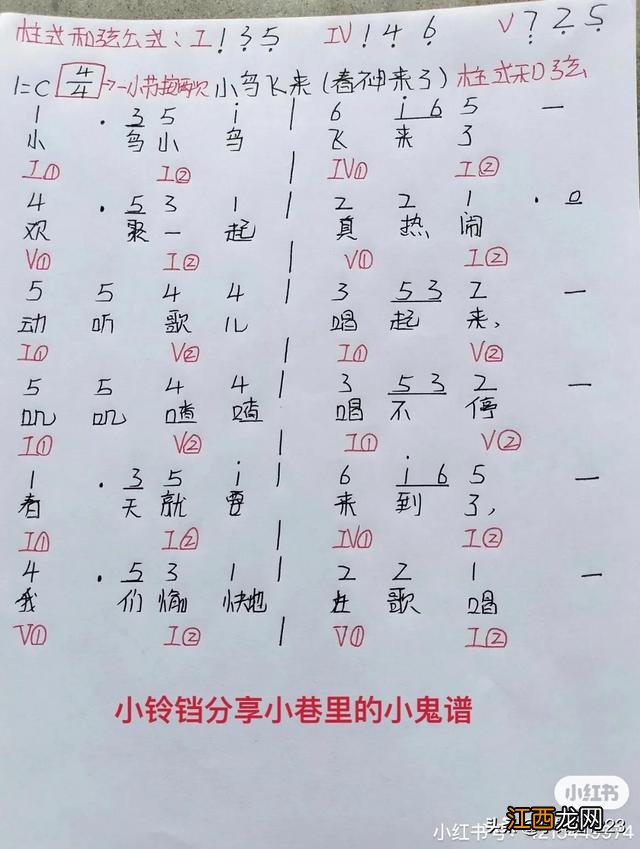 柱式和弦公式：I 1 3 5 IV 1 4 6 V 7 2 5
1=C 4/4 →一小节按两次 小鸟飞来（春神来了）柱式和弦
1 . 3 5 i | 6 i 6 5 —
小 鸟 小 鸟 飞 来 了
I① I② | IV① I②
4 . 5 3 1 | 2 2 1 . 0
欢 聚 一 起 真 热 闹
V① I② | V① I②
5 5 4 4 | 3 5 3 2 —
动 听 歌 儿 唱 起 来，
I① V② | I① V②
5 5 4 4 | 3 5 3 2 —
叽 叽 喳 喳 唱 不 停
I① V② | I① V②
1 . 3 5 i | 6 i 6 5 —
春 天 就 要 来 到 了，
I① I② | IV① I②
4 . 5 3 1 | 2 2 1 —
我 们 愉 快地 在 歌 唱
V① I② | V① I②
小铃铛分享小巷里的小鬼谱
小红书
江西龙网